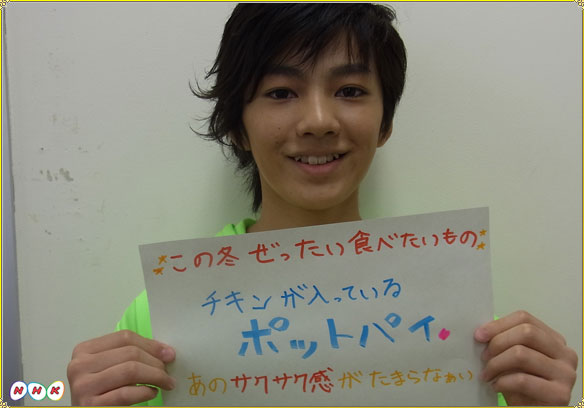 この冬ぜったい食べたいもの
チキンが入っている
ポットパイ
あのサクサク感がたまらなぁい
NHK